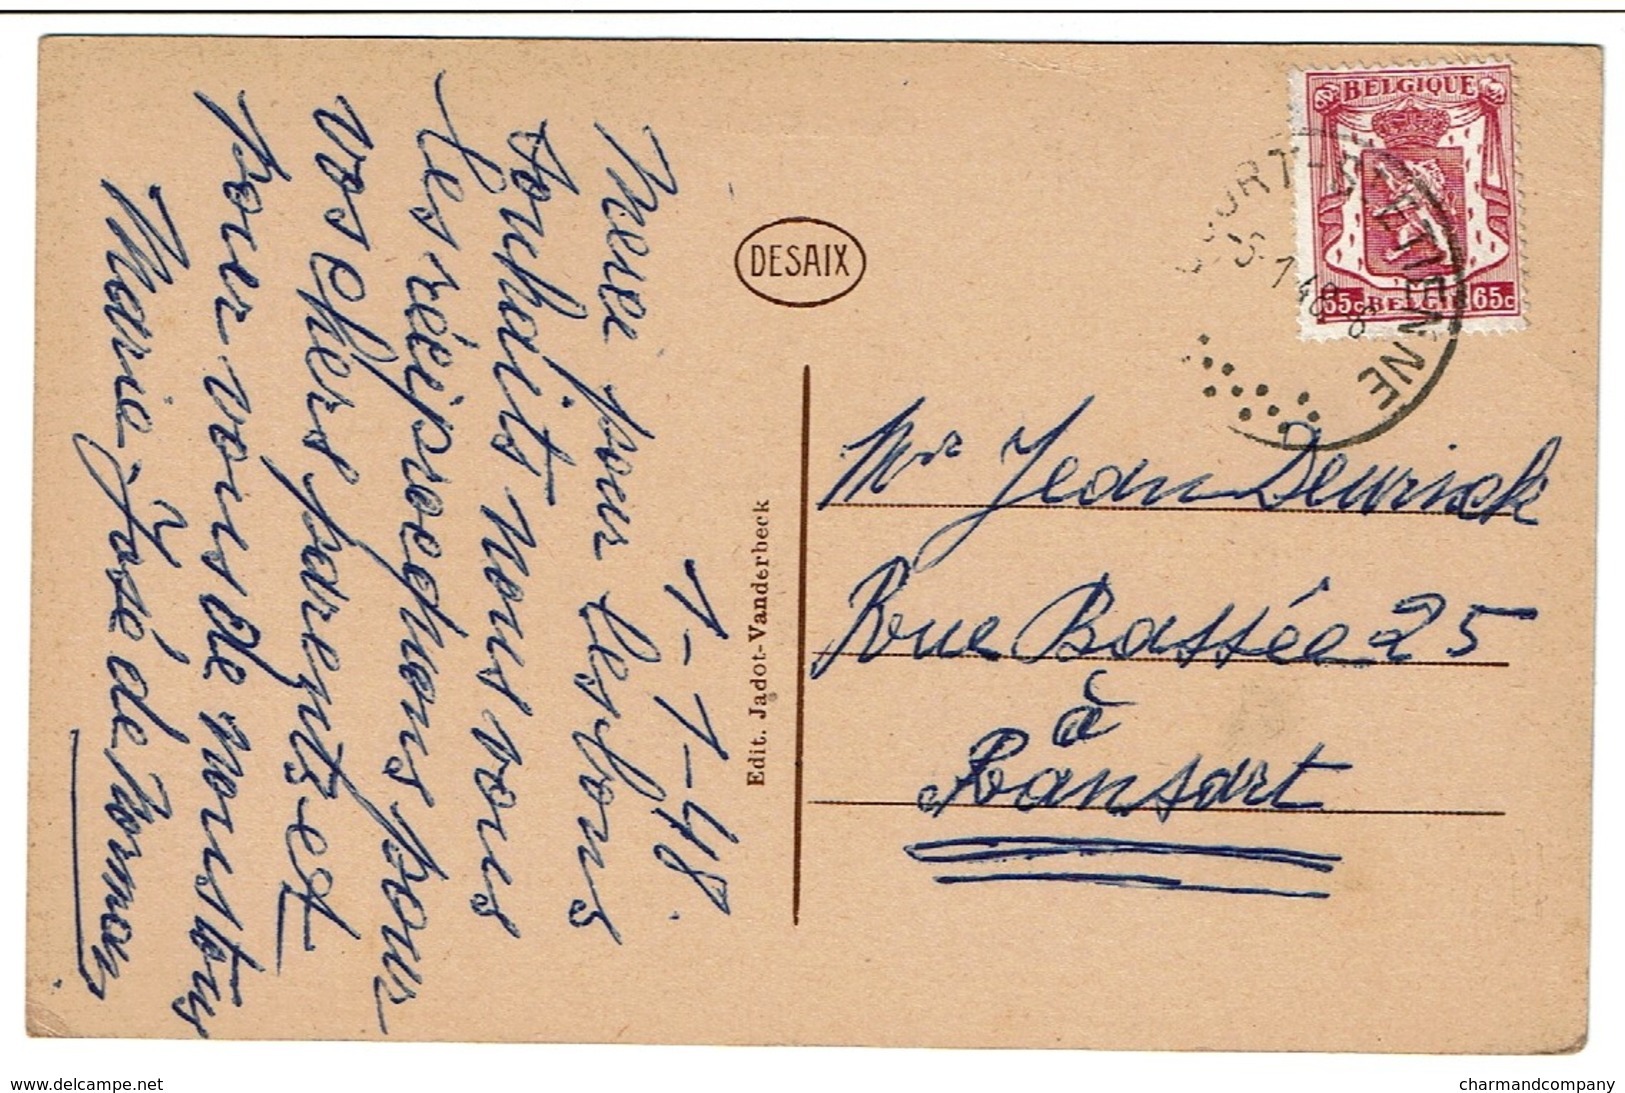 1-1-48.
Merci pour les bons
souhaits nous vous
les réciproquons pour
vos chers parents et
pour vous de nous tous
Marie José de
DESAIX
Edit. Jadot-Vanderbeck
BELGIQUE
65c BELGIE 65c
COURT-ST-ETIENNE
Mr Jean Deurinck
Rue Bassée 25
à
Ransart
www.delcampe.net
charmandcompany